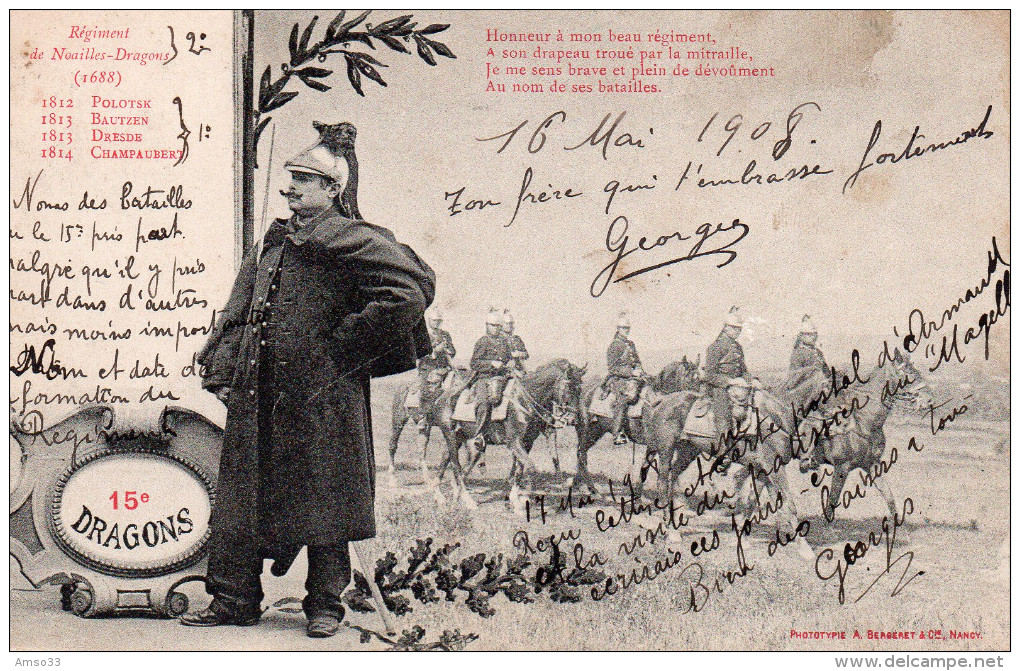 Régiment
de Noailles-Dragons
(1688)
2º
1812 POLOTSK
1813 BAUTZEN
1813 DRESDE
1814 CHAMPAUBERT
1º
Noms des batailles
u le 15e pris part.
malgré qu'il y pris
part dans d'autres
mais moins important
Nom et date de
formation du
Régiment
15e
DRAGONS
Honneur à mon beau régiment,
A son drapeau troué par la mitraille,
Je me sens brave et plein de dévoûment
Au nom de ses batailles.
16 Mai 1908
Ton frère qui t'embrasse fortement
Georges
17 Mai 1908
Reçu lettre et carte postal de Armand
et la visite du patissier du "Magell
ecrirais ces jours-ci
Bien des baisers a tous
Georges.
PHOTOTYPIE A. BERGERET & Cie, NANCY.
Amso33
delcampe.net